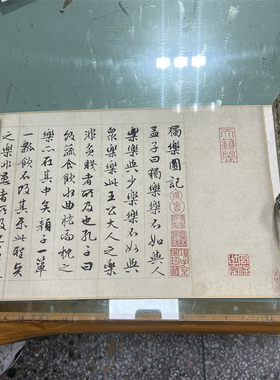 獨樂園記
孟子曰獨樂樂不如與人
樂樂與少樂樂不如與
衆樂樂此王公大人之樂
非貧賤者所及也孔子曰
飯蔬食飲水曲肱而枕之
樂亦在其中矣顏子一簞
一瓢飲不改其樂此聖賢
之樂非愚者所及